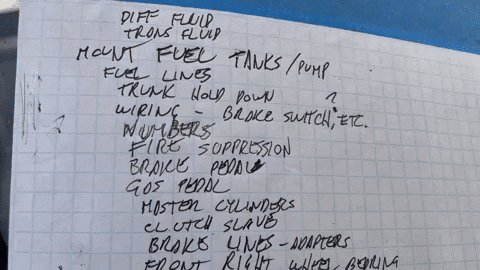 DIFF FLUID
TRANS FLUID
MOUNT FUEL TANKS/PUMP
FUEL LINES
TRUNK HOLD DOWN
WIRING - BRAKE SWITCH, ETC. ?
NUMBERS
FIRE SUPPRESSION
BRAKE PEDAL
GAS PEDAL
MASTER CYLINDERS
CLUTCH SLAVE
BRAKE LINES - ADAPTERS
FRONT RIGHT WHEEL BEARING